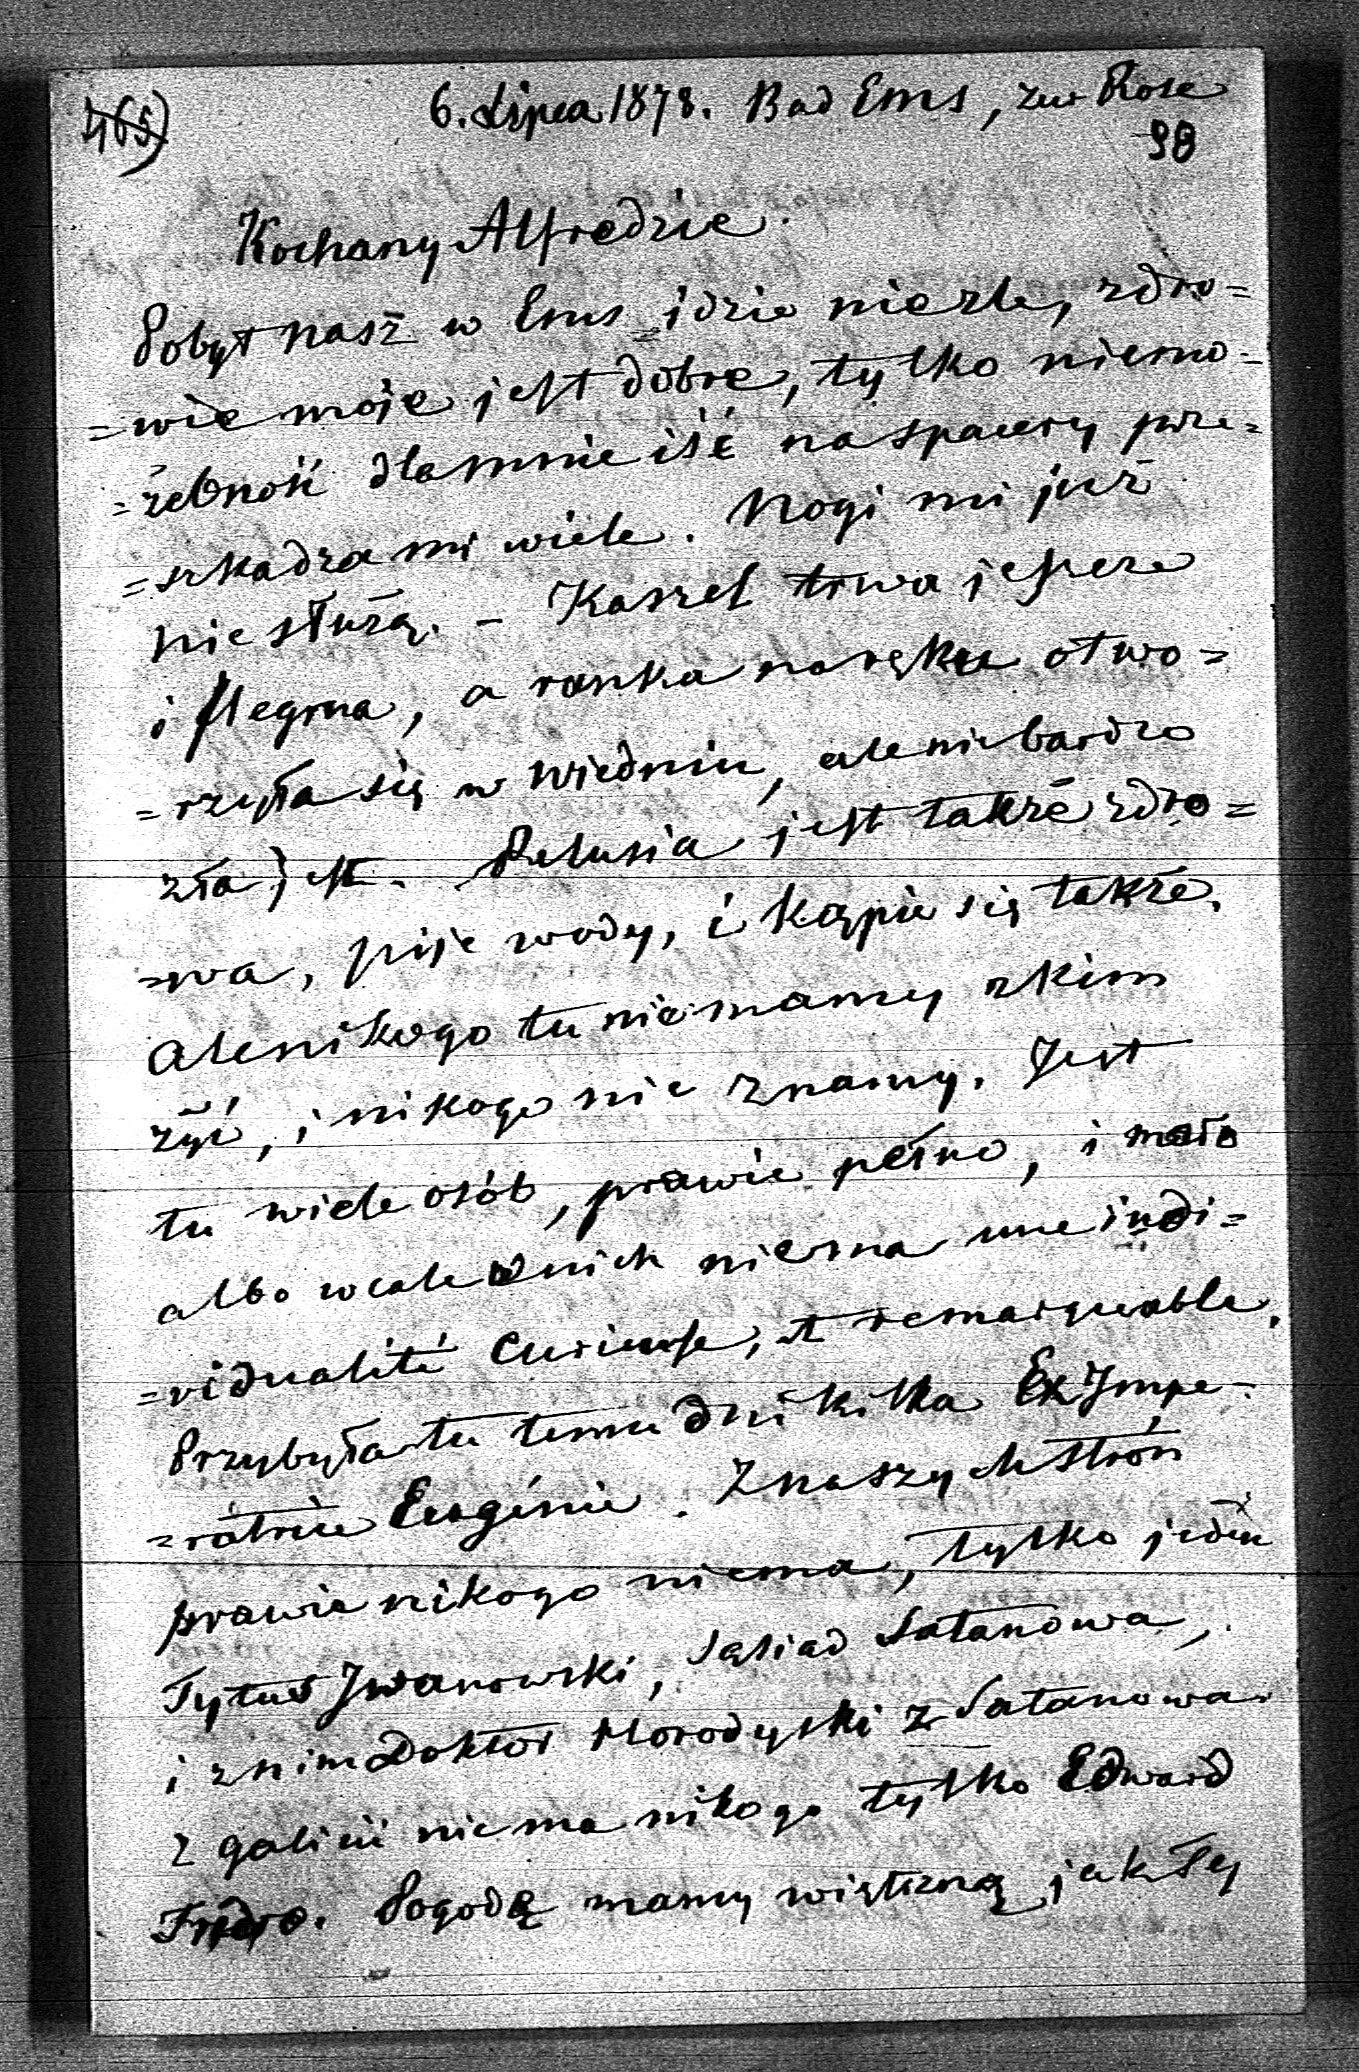 465)
6. Lipca 1878. Bad Ems, zur Rose
98
Kochany Alfredzie.
Pobyt nasz w Ems idzie niezle, zdro=
=wie moje jest dobre, tylko niemo=
=żebność dla mnie iść na spacery prze=
=szkadza mi wiele. Nogi mi już
nie służą. – Kaszel trwa jeszcze
i flegma, a ranka na ręku otwo=
=rzyła się w Wiedniu, ale nie bardzo
zła jest. Relusia jest także zdro=
=wa, pije wody, i kąpie się także.
ale nikogo tu nie mamy z kim
żyć, i nikogo nie znamy. Jest
tu wiele osób, prawie pełno, i mało
albo wcale w nich niema une indi=
=vidualité curieuse, et remarquable.
Przybyła tu temu dni kilka Ex Impe=
=ratrice Eugénie. Z naszych stron
prawie nikogo niema, tylko jeden
Tytus Iwanowski, sąsiad Satanowa,
i z nim Doktor Horodyski z Satanowa.
z galicii niema nikogo tylko Edward
Fredro. Pogodę mamy wietrzną jak Ty